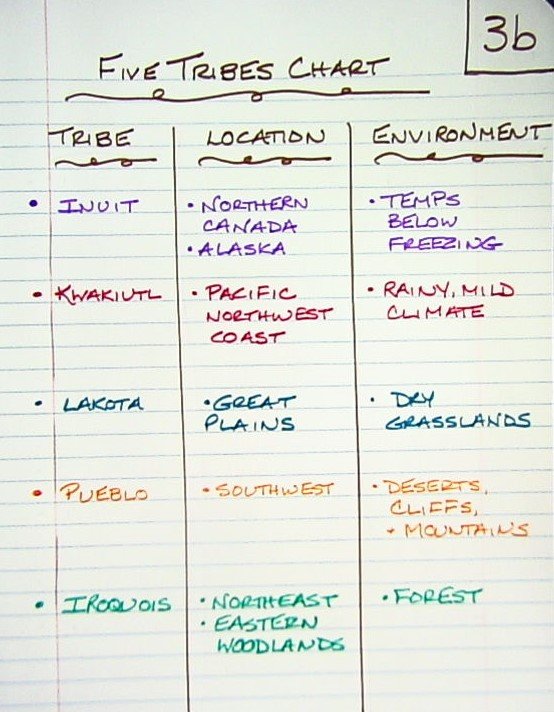 3b
FIVE TRIBES CHART
TRIBE LOCATION ENVIRONMENT
• INUIT • NORTHERN • TEMPS
CANADA BELOW
• ALASKA FREEZING
• KWAKIUTL • PACIFIC • RAINY, MILD
NORTHWEST CLIMATE
COAST
• LAKOTA • GREAT • DRY
PLAINS GRASSLANDS
• PUEBLO • SOUTHWEST • DESERTS,
CLIFFS,
+ MOUNTAINS
• IROQUOIS • NORTHEAST • FOREST
• EASTERN
WOODLANDS